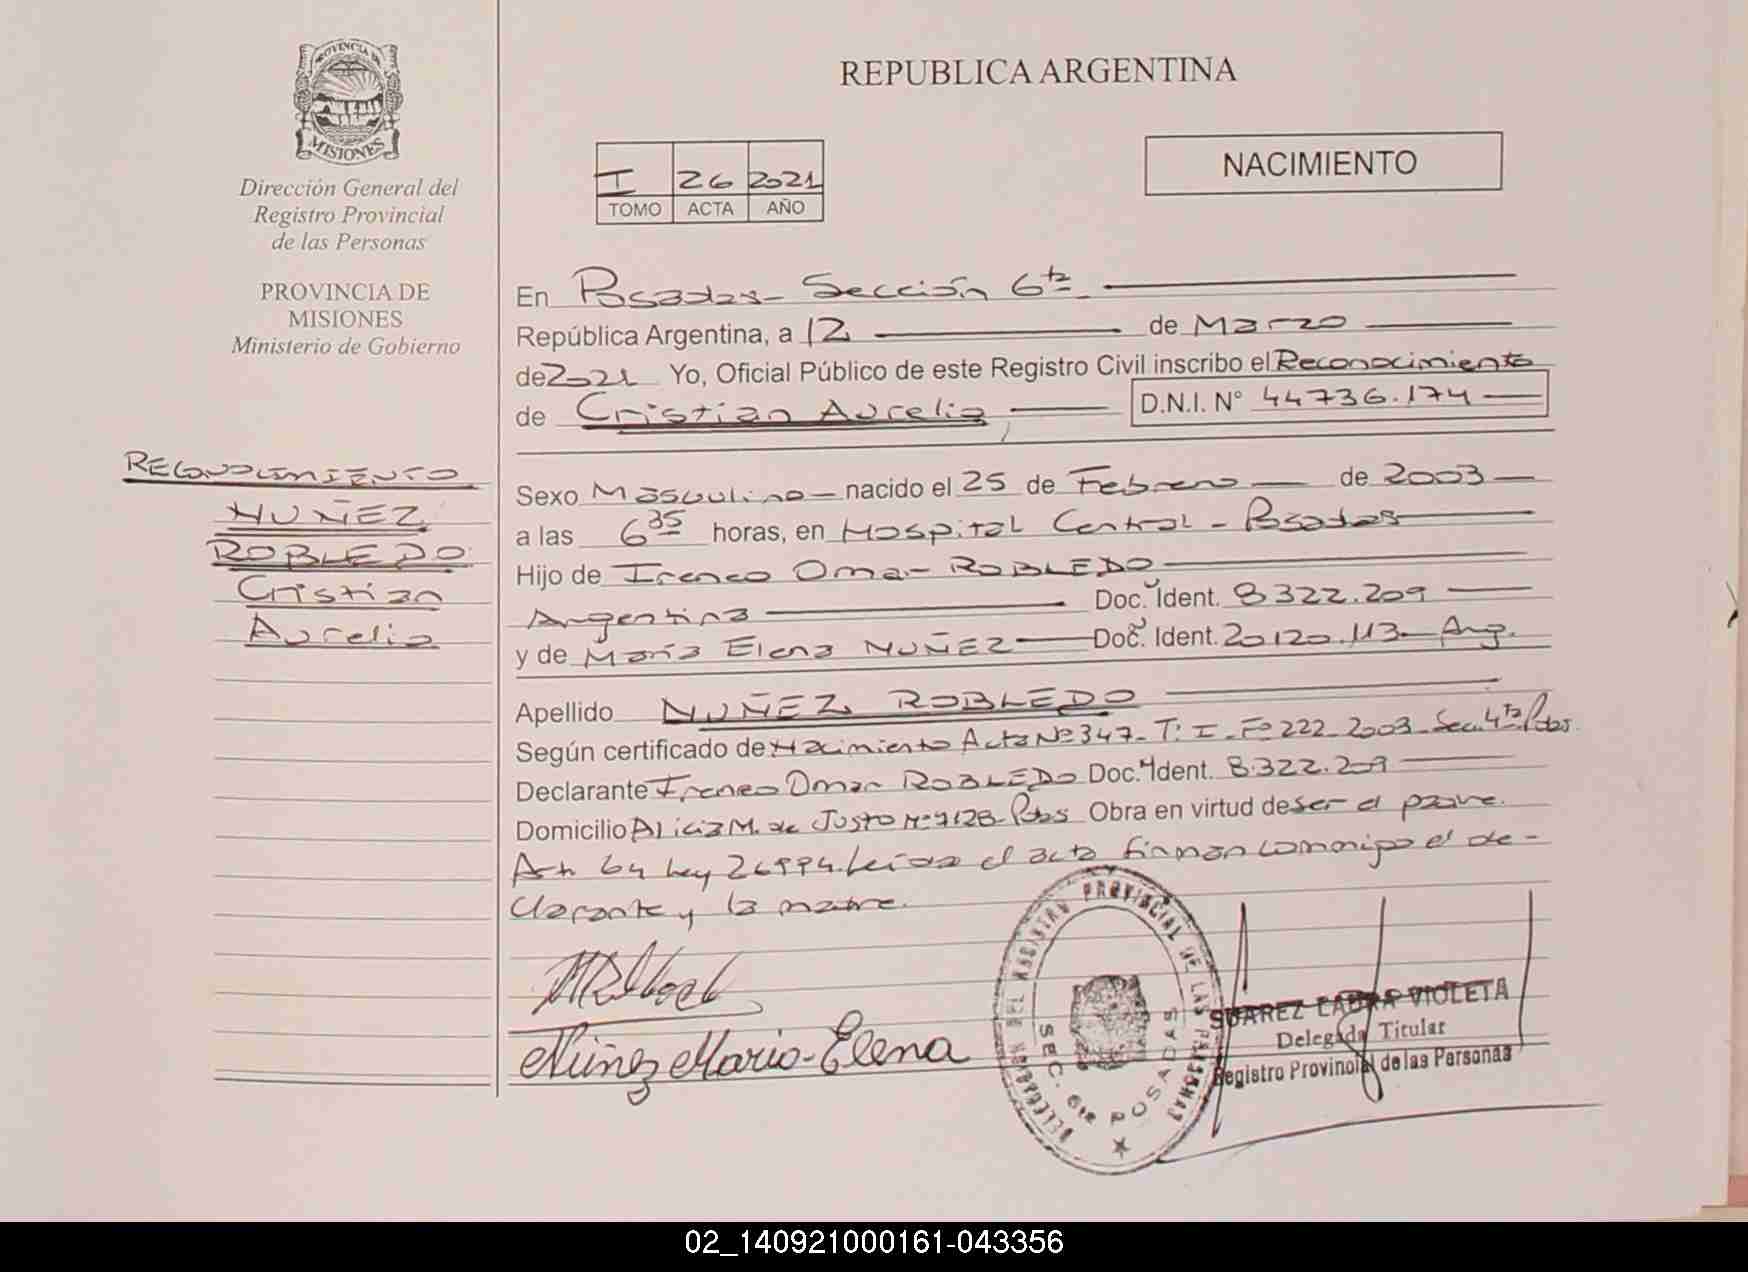 PROVINCIA DE
MISIONES
Dirección General del
Registro Provincial
de las Personas
PROVINCIA DE
MISIONES
Ministerio de Gobierno
RECONOCIMIENTO
NUÑEZ
ROBLEDO
Cristian
Aurelio
REPUBLICA ARGENTINA
I 26 2021
TOMO ACTA AÑO
NACIMIENTO
En Posadas - Sección 6ta
República Argentina, a 12 de Marzo
de 2021 Yo, Oficial Público de este Registro Civil inscribo el Reconocimiento
de Cristian Aurelio D.N.I. N° 44736.174
Sexo Masculino nacido el 25 de Febrero de 2003
a las 6 35 horas, en Hospital Central - Posadas
Hijo de Ireneo Omar ROBLEDO
Argentina Doc. Ident. 8322.209
y de María Elena NUÑEZ Doc. Ident. 20120.113 - Arg.
Apellido NUÑEZ ROBLEDO
Según certificado de Nacimiento Acta Nº 347 - T: I - Fº 222 - 2003 - Sec. 4ta Pdas.
Declarante Ireneo Omar ROBLEDO Doc. Ident. 8.322.209
Domicilio Alicia M. de Justo Nº 7128 - Pdas Obra en virtud de ser el padre.
Art. 64 Ley 26994. Leída el acta firman conmigo el de-
clarante y la madre.
Núñez María-Elena
DELEGACION DEL REGISTRO PROVINCIAL DE LAS PERSONAS
SEC. 6ta POSADAS
SUAREZ LAURA VIOLETA
Delegada Titular
Registro Provincial de las Personas
02_140921000161-043356